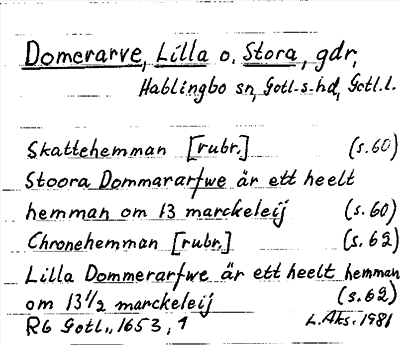 Domerarve, Lilla o. Stora, gdr,
Hablingbo sn, Gotl. s. hd, Gotl. l.
Skattehemman [rubr.] (s. 60)
Stoora Dommararfwe är ett heelt
hemman om 13 marckeleij (s. 60)
Chronehemman [rubr.] (s. 62)
Lilla Dommerarfwe är ett heelt hemman
om 13 1/2 marckeleij (s. 62)
RG Gotl., 1653, 1 L. Aks. 1981